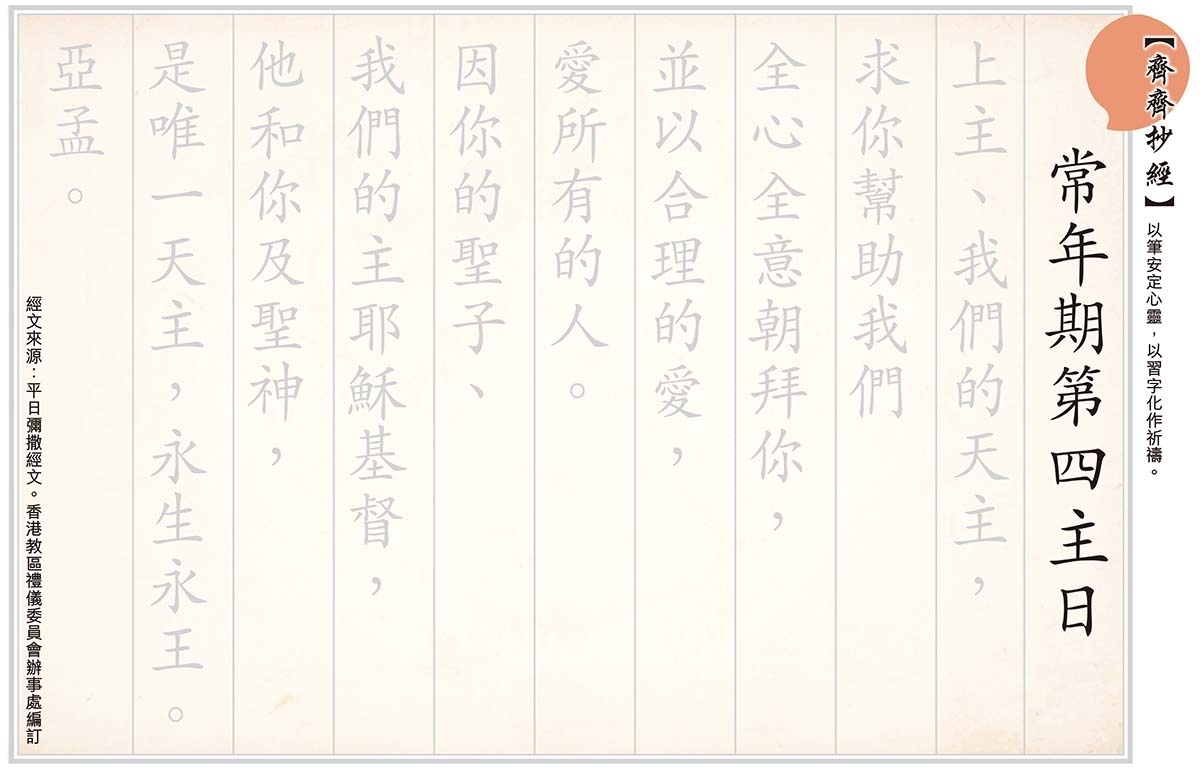 【齊齊抄經】
以筆安定心靈，以習字化作祈禱。
常年期第四主日
上主、我們的天主，
求你幫助我們
全心全意朝拜你，
並以合理的愛，
愛所有的人。
因你的聖子、
我們的主耶穌基督，
他和你及聖神，
是唯一天主，永生永王。
亞孟。
經文來源：平日彌撒經文。香港教區禮儀委員會辦事處編訂